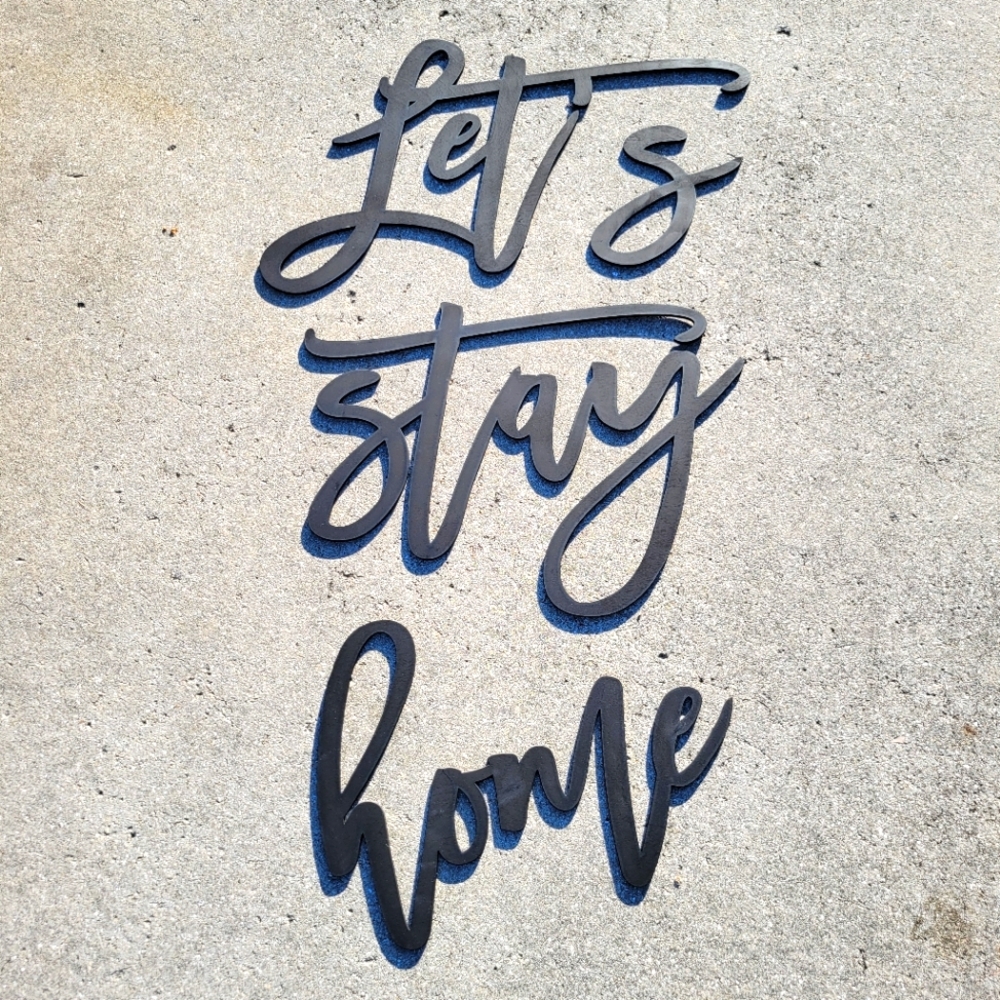 Let's
stay
home